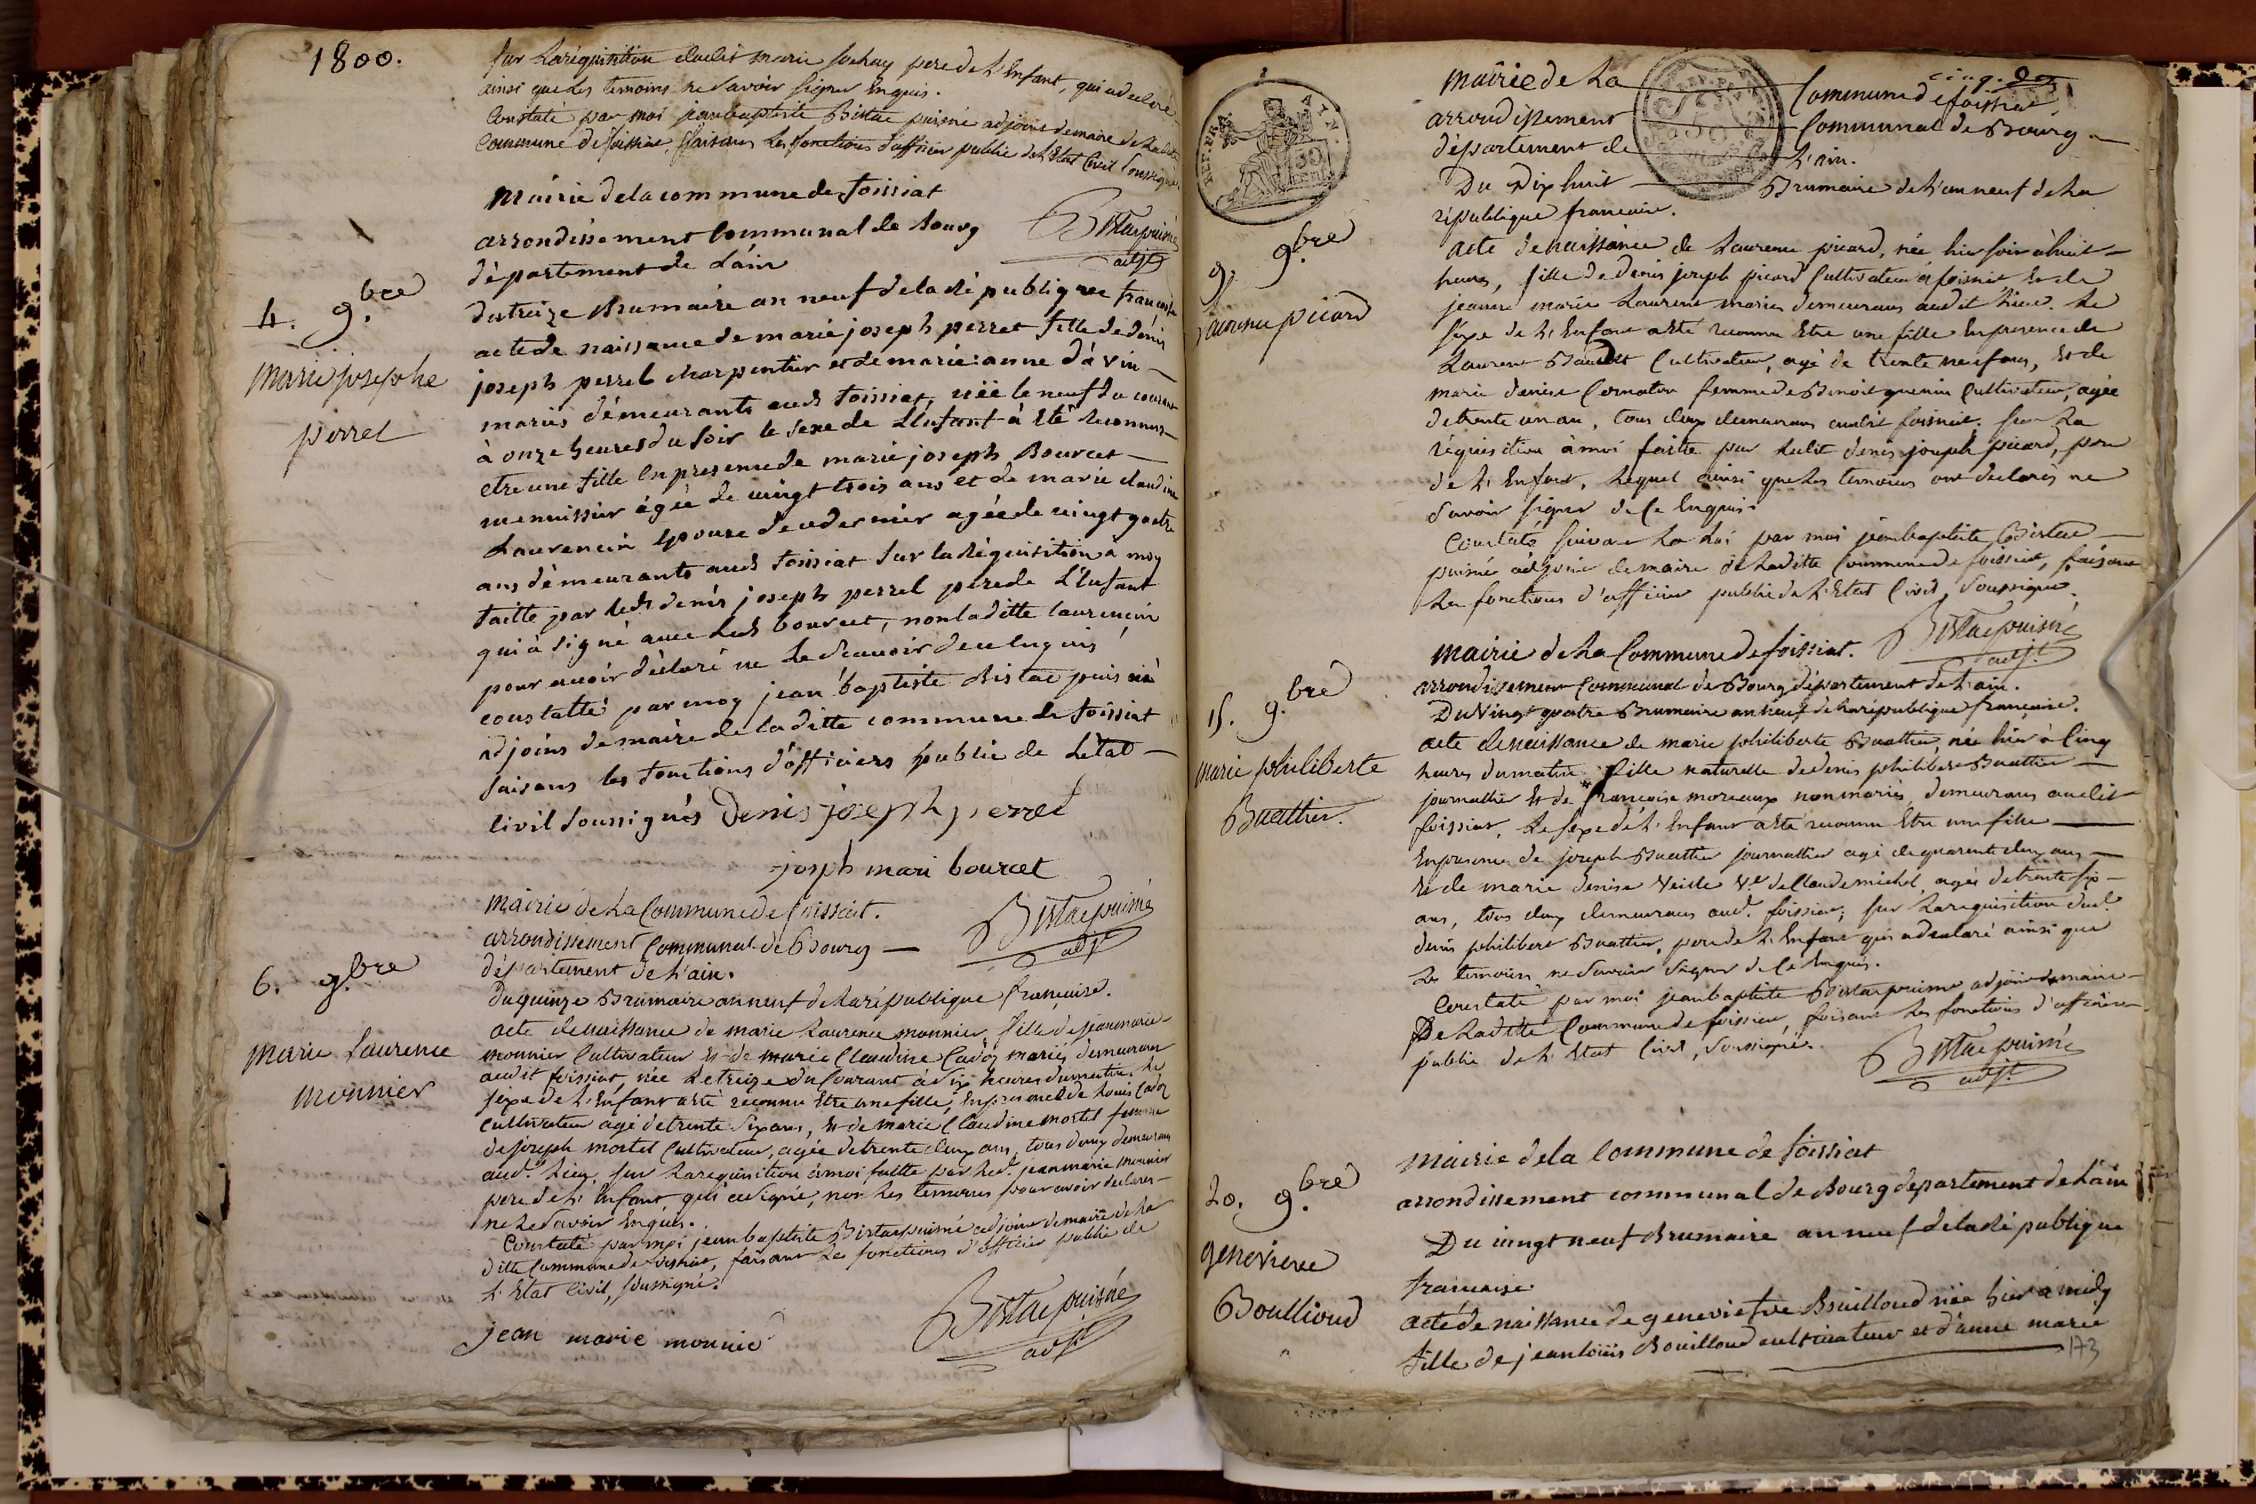 1800.
sur la réquisition dudit marie pere de l'Enfant, qui a declaré
ainsi que les temoins ne savoir signer Enquis.
Constaté par moi jeanbaptiste Bistac puisné adjoint de maire de la dite
Commune de foissiat, faisant les fonctions d'officier public de l'Etat Civil soussigné
Mairie de la commune de foissiat
arrondissement Communal de bourg
département de L'ain
Bistac puisné
adjt
4. 9.bre
Marie josephe
perret
du treize Brumaire an neuf de la république francoise
acte de naissance de marie joseph perret fille de denis
joseph perret charpentier et de marie anne d'avin
mariés démeurants aud foissiat, née le neuf du courant
à onze heures du soir le sexe de L'enfant à été reconnus
etre une fille En presence de marie joseph Bourcet
menuissier égée de vingt trois ans et de marie claudine
Laurencin Epouse de ce dernier agée de vingt quatre
ans démeurants aud foissiat sur la réquisition à moy
faitte par led denis joseph perret pere de L'Enfant
qui à signé avec led bourcet, non laditte laurencin
pour avoir déclaré ne le scavoir de ce Enquis
constatté par moy jean baptiste bistac puis né
adjoins de maire de la ditte commune de foissiat
faisans les fonctions d'officiers public de L'état
Civil soussignés Denis joseph perret
joseph mari bourcet
Mairie de la Commune de foissiat.
arrondissement Communal de Bourg
département de L'ain.
Bistac puisné
adjt
6. 9.bre
Marie Laurence
Monnier
Du quinze Brumaire an neuf de la république française.
acte de naissance de marie Laurence monnier, fille de jeanmarie
monnier Cultivateur & de marie Claudine Cadoz mariés demeurans
audit foissiat, née le treize du Courant à dix heures du matin, le
sexe de l'Enfant a été reconnu Etre une fille, En presence de Louis Cadoz
cultivateur agé de trente six ans, & de marie Claudine mortel femme
de joseph mortel Cultivateur, agée de trente deux ans, tous deux demeurans
aud. lieu, sur la requisition à moi faitte par led. jeanmarie monnier
pere de l'Enfant, qui a signé, non les temoins pour avoir declaré
ne le savoir Enquis.
Constaté par moi jeanbaptiste Bistac puisné adjoint de maire de la
ditte Commune de foissiat, faisant les fonctions d'officier public de
l'Etat Civil, soussigné.
jean marie monnié
Bistac puisné
adjt
REP. FRA.
AIN.
Mairie de La Commune de foissiat
arrondissement Communal de Bourg
département de L'ain.
Du Dix huit Brumaire de l'an neuf de la
république francaise.
9. 9.bre
Laurence picard
acte de naissance de Laurence picard, née hier soir à huit
heures, fille de denis joseph picard Cultivateur à foissiat & de
jeanne marie Laurent mariés demeurans audit lieu. le
sexe de l'Enfant a été reconnu Etre une fille En presence de
Laurent Cultivateur, agé de trente neuf ans, & de
marie denise Cornaton femme de Benoit guenin Cultivateur, agée
de trente un an, tous deux demeurans audit foissiat. sur la
réquisition à moi faitte par ledit denis joseph picard, pere
de l'Enfant, lequel ainsi que les temoins ont declarés ne
savoir signer de ce Enquis.
Constaté suivant la loi par moi jeanbaptiste Bistac
puisné adjoint de maire de laditte Commune de foissiat, faisant
les fonctions d'officier public de l'Etat Civil, soussigné.
Bistac puisné
adjt.
Mairie de la Commune de foissiat.
arrondissement Communal de Bourg département de l'ain.
15. 9.bre
Marie philiberte
Buatthier.
Du Vingt quatre Brumaire an neuf de la république française.
acte de naissance de marie philiberte Buatthier, née hier à Cinq
heures du matin fille naturelle de denis philibert Buatthier
journallier & de francoise moreaux non mariés, demeurans audit
foissiat, le sexe de l'Enfant a été reconnu Etre une fille
En presence de joseph Buatthier journallier agé de quarente deux ans
& de marie denise Veille Ve de Claude michel, agée de trente six
ans, tous deux demeurans aud. foissiat, sur la requisition dud.
denis philibert Buatthier, pere de l'Enfant qui a declaré ainsi que
les temoins ne savoir signer de ce Enquis.
Constaté par moi jeanbaptiste Bistac puisné adjoint de maire
De laditte Commune de foissiat, faisant les fonctions d'officier
public de l'Etat Civil, soussigné.
Bistac puisné
adjt.
Mairie dela Commune de foissiat
arrondissement communal de Bourg departement de L'ain
20. 9.bre
genevieve
Boullioud
Du vingt neuf Brumaire an neuf de la république
francaise
acte de naissance de genevieve Bouilloud née hier à midy
fille de jeanloüis Bouilloud cultivateur et d'anne marie
173